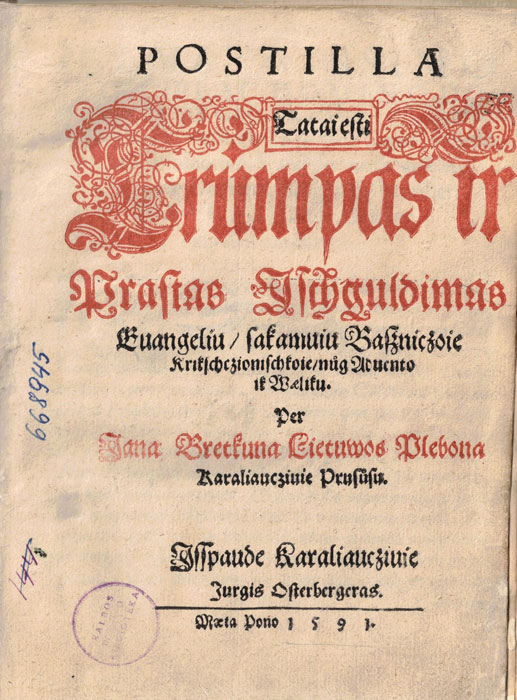 POSTILLA
Tatai esti
Trumpas ir
Prastas Ischguldimas
Euangeliu / sakamuiu Baszniczoie
Krikschczionischkoie / nůg Aduento
ik Wæliku.
Per
Jana Bretkuna Lietuwos Plebona
Karaliaucziuie Prusůsu.
Isspaude Karaliaucziuie
Jurgis Osterbergeras.
Mæta Pono 1591.
668945